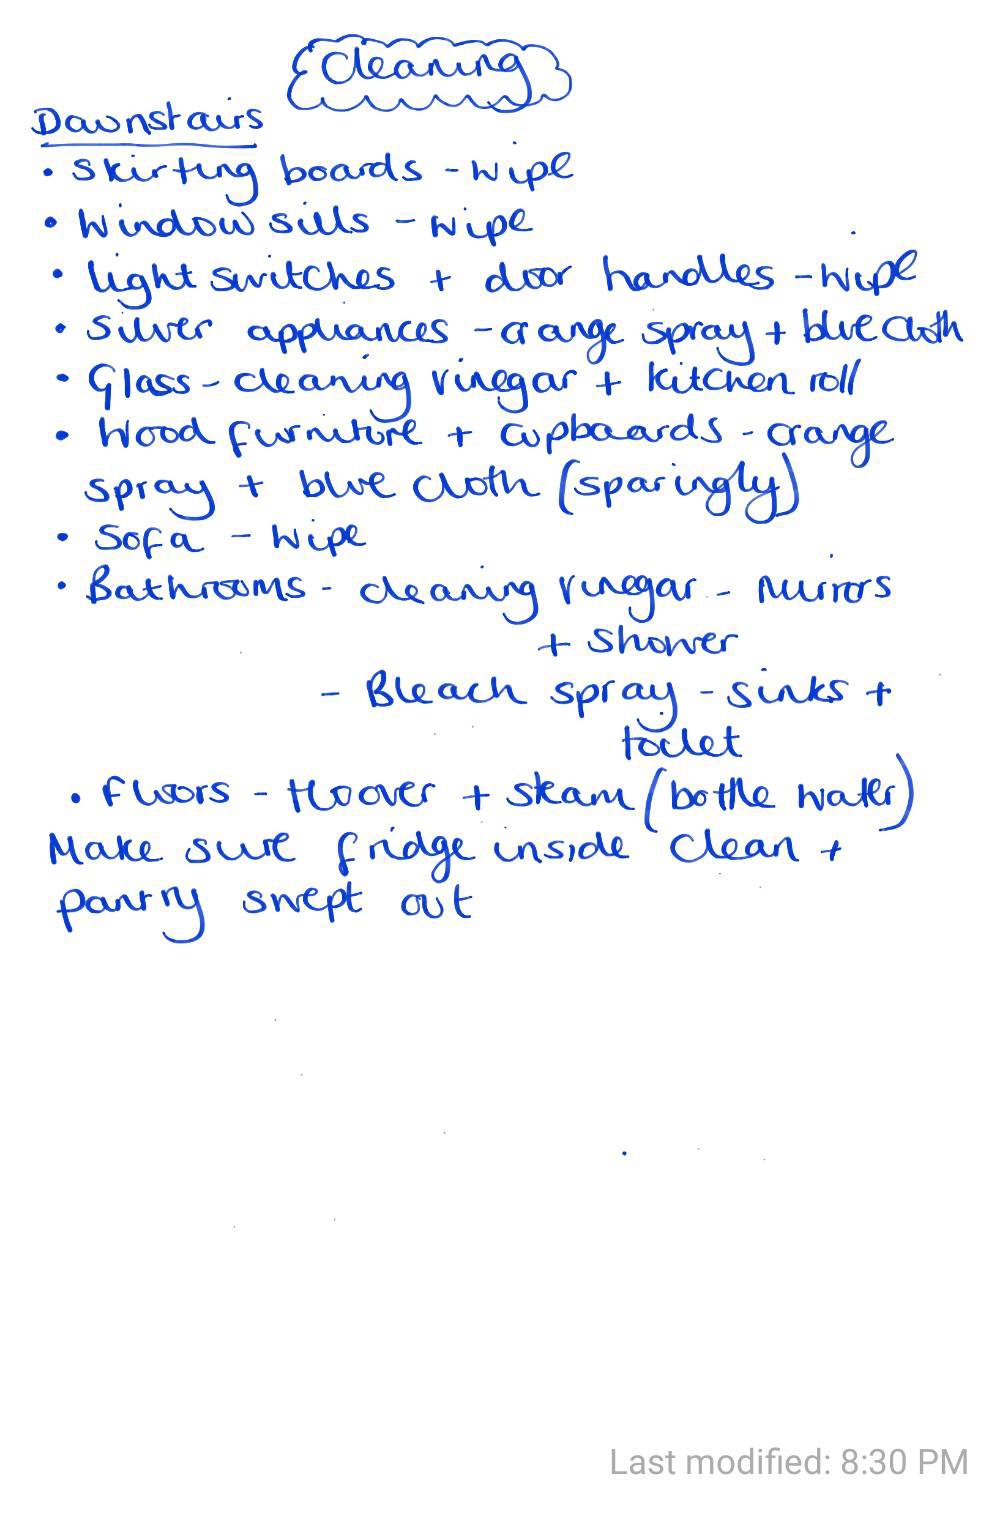 Cleaning
Downstairs
• Skirting boards - wipe
• Window sills - wipe
• light switches + door handles - wipe
• Silver appliances - orange spray + blue cloth
• Glass - cleaning vinegar + kitchen roll
• Wood furniture + cupboards - orange
spray + blue cloth (sparingly)
• Sofa - wipe
• Bathrooms - cleaning vinegar - Mirrors
+ shower
- Bleach spray - sinks +
toilet
• Floors - Hoover + steam (bottle water)
Make sure fridge inside clean +
pantry swept out
Last modified: 8:30 PM